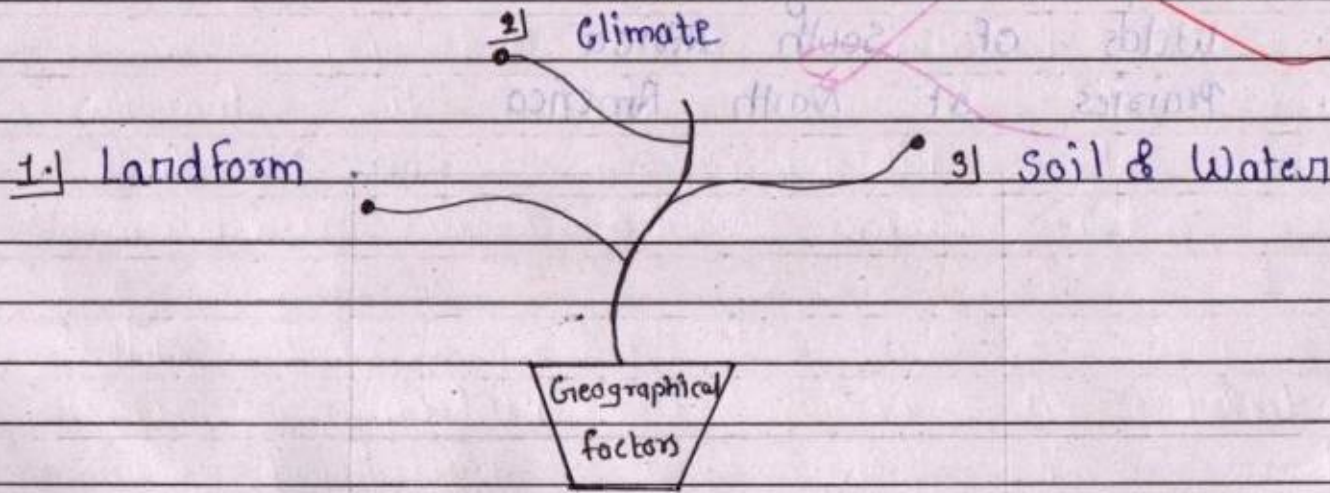 2) Climate
1.) Landform
3) Soil & Water
Geographical
factors